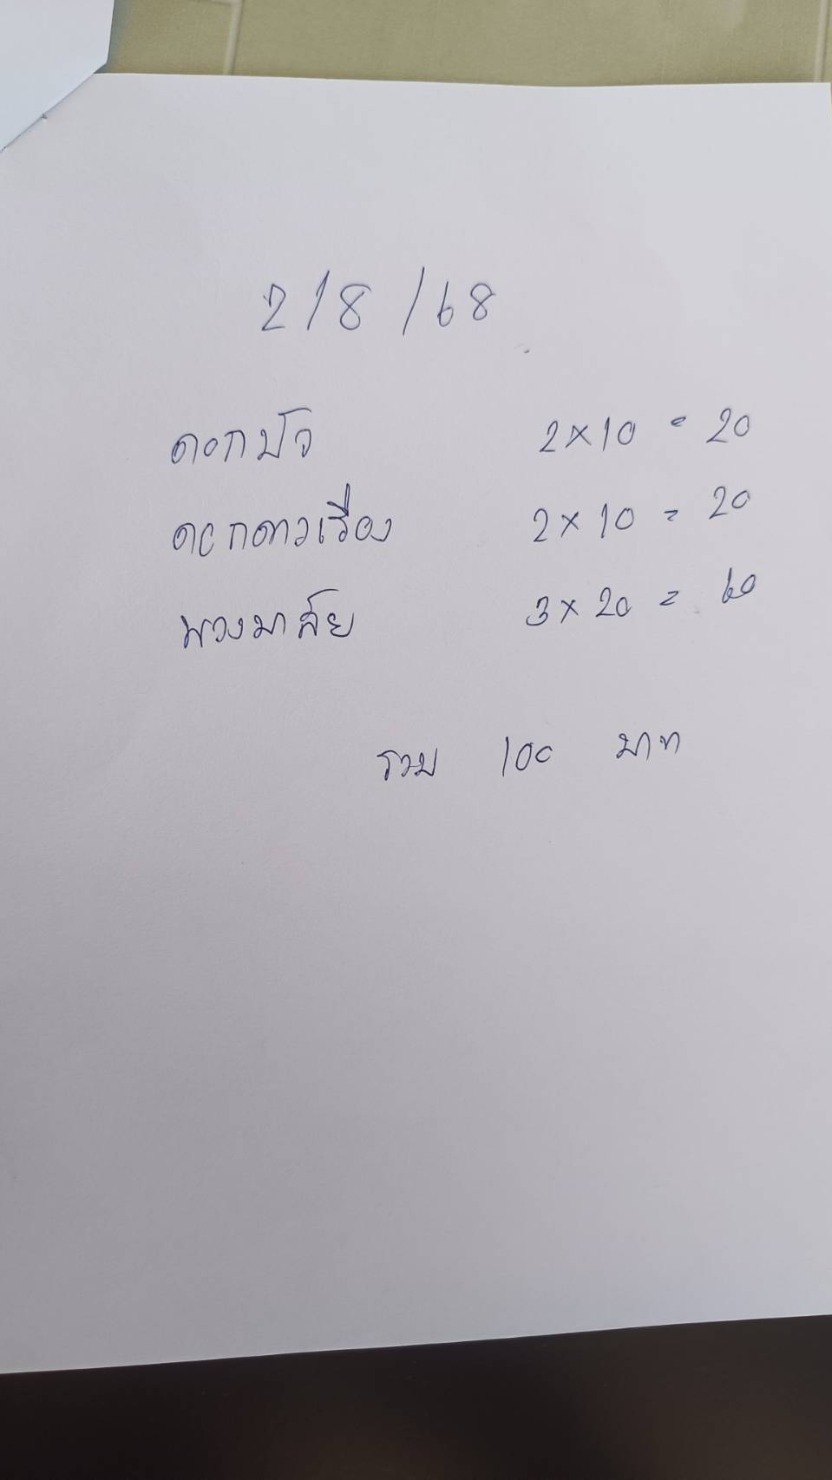 2/8/68
ดอกบัว 2×10 = 20
ดอกดาวเรือง 2×10 = 20
พวงมาลัย 3×20 = 60
รวม 100 บาท